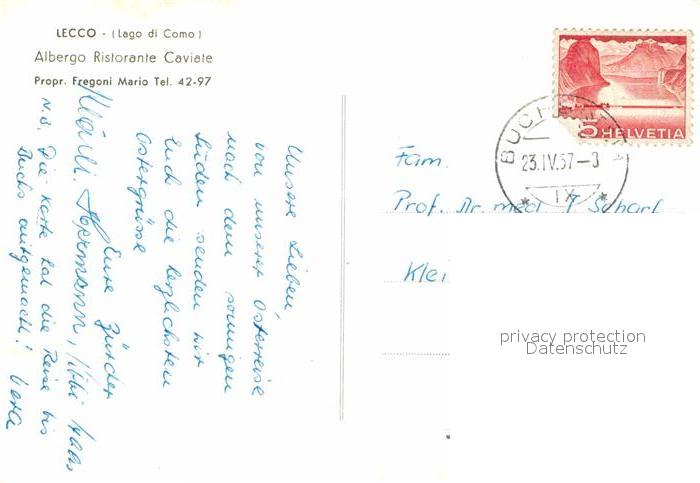 LECCO - (Lago di Como)
Albergo Ristorante Caviate
Propr. Fregoni Mario Tel. 42-97
Unsere Lieben,
von unserer Osterreise
nach dem sonnigen
Süden senden wir
Euch die herzlichsten
Ostergrüsse
Eure Zürcher
Hermann,
N.B. Die Karte hat die Reise bis
Buchs mitgemacht! Vera
5 HELVETIA
BUCHS
23.IV.57-9
IX
Fam.
Prof. Dr. med. Scharf
Klei
privacy protection
Datenschutz